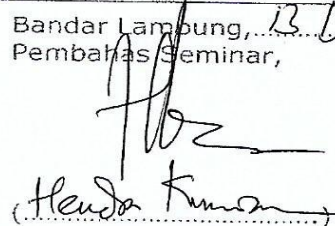 Bandar Lampung, 13
Pembahas Seminar,
(Hendra Kurniawan)